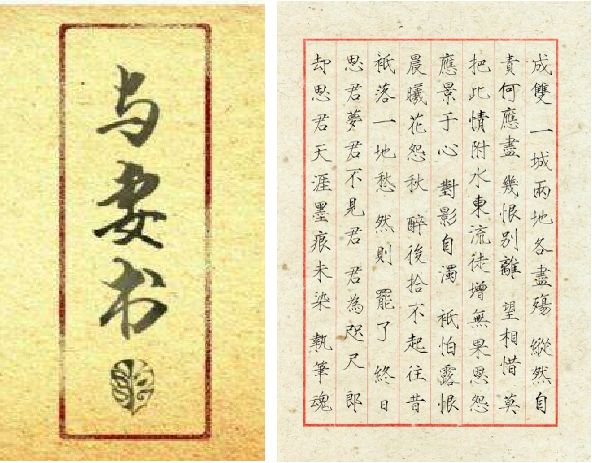 与妻书
成雙 一城兩地各盡殤 縱然自
責何應盡 幾恨别離 望相惜 莫
把此情附水東流徒增無果恩怨
應景于心 對影自濁 祇怕露恨
晨曦花怨秋 醉後拾不起往昔
祇落一地愁 然則 罷了 終日
思君夢君不見君 君為咫尺郎
却思君天涯墨痕未染 執筆魂